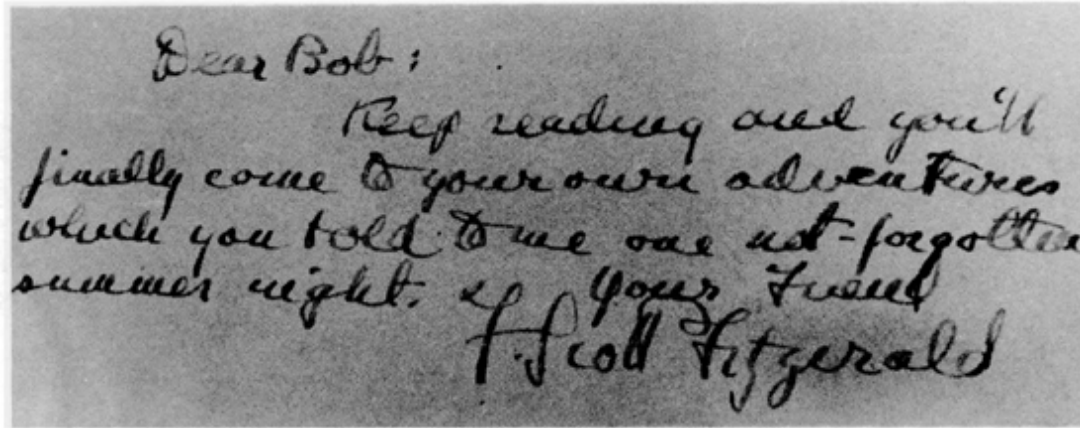 Dear Bob:
Keep reading and you'll
finally come to your own adventures
which you told to me one not-forgotten
summer night.
Your Friend
F. Scott Fitzgerald